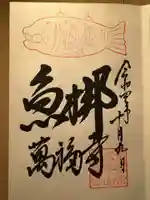 魚梆
萬福寺
令和四年十月九日